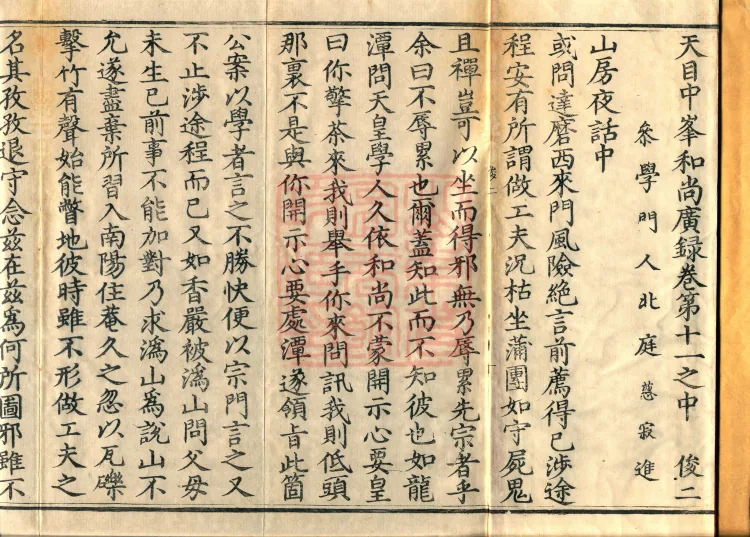 天目中峯和尚廣録卷第十一之中　俊二
叅學門人北庭慈寂進
山房夜話中
或問達磨西來門風險絶言前薦得已涉途
程安有所謂做工夫況枯坐蒲團如守屍鬼
且禪豈可以坐而得邪無乃辱累先宗者乎
余曰不辱累也爾蓋知此而不知彼也如龍
潭問天皇學人久依和尚不蒙開示心要皇
曰你擎茶來我則舉手你來問訊我則低頭
那裏不是與你開示心要處潭遂領旨此箇
公案以學者言之不勝快便以宗門言之又
不止涉途程而已又如香嚴被溈山問父母
未生已前事不能加對乃求溈山爲説山不
允遂盡棄所習入南陽住菴久之忽以瓦礫
擊竹有聲始能瞥地彼時雖不形做工夫之
名其孜孜退守念茲在茲爲何所圖邪雖不
俊二